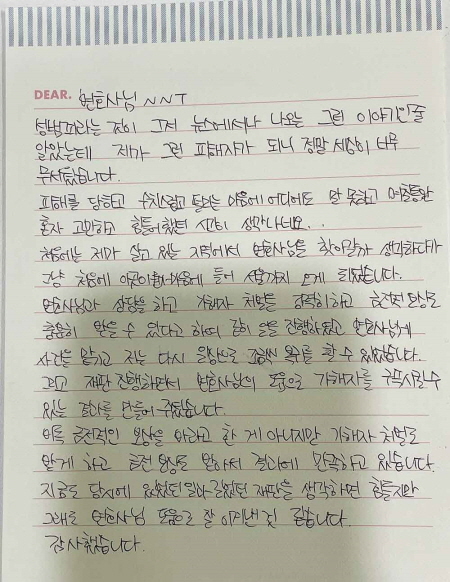 DEAR. 변호사님 NNT
성범죄라는 것이 그저 뉴스에서나 나오는 그런 이야기인줄
알았는데 제가 그런 피해자가 되니 정말 세상이 너무
무서웠습니다.
피해를 당하고 수치스럽고 떨리는 마음에 어디에도 말 못하고 며칠동안
혼자 고민하고 힘들어했던 시간이 생각나네요..
처음에는 제가 살고 있는 지역에서 변호사님을 찾아갈까 생각하다가
그냥 처음에 마음에 들어 서울까지 오게 되었습니다.
변호사님과 상담을 하고 가해자 처벌을 하고 금전적 보상도
충분히 받을 수 있다고 하여 일을 진행하였고 변호사님께
사건을 맡기고 저는 다시 일상으로 조금씩 복귀를 할 수 있었습니다.
그리고 재판 진행하면서 변호사님의 도움으로 가해자를 구속시킬수
있는 결과를 만들어 주셨습니다.
비록 금전적인 보상을 바라고 한 게 아니지만 가해자 처벌도
받게 하고 금전 보상도 받아서 결과에 만족하고 있습니다.
지금도 당시에 있었던 일과 길었던 재판을 생각하면 힘들지만
그래도 변호사님 도움으로 잘 이겨낸 것 같습니다.
감사했습니다.